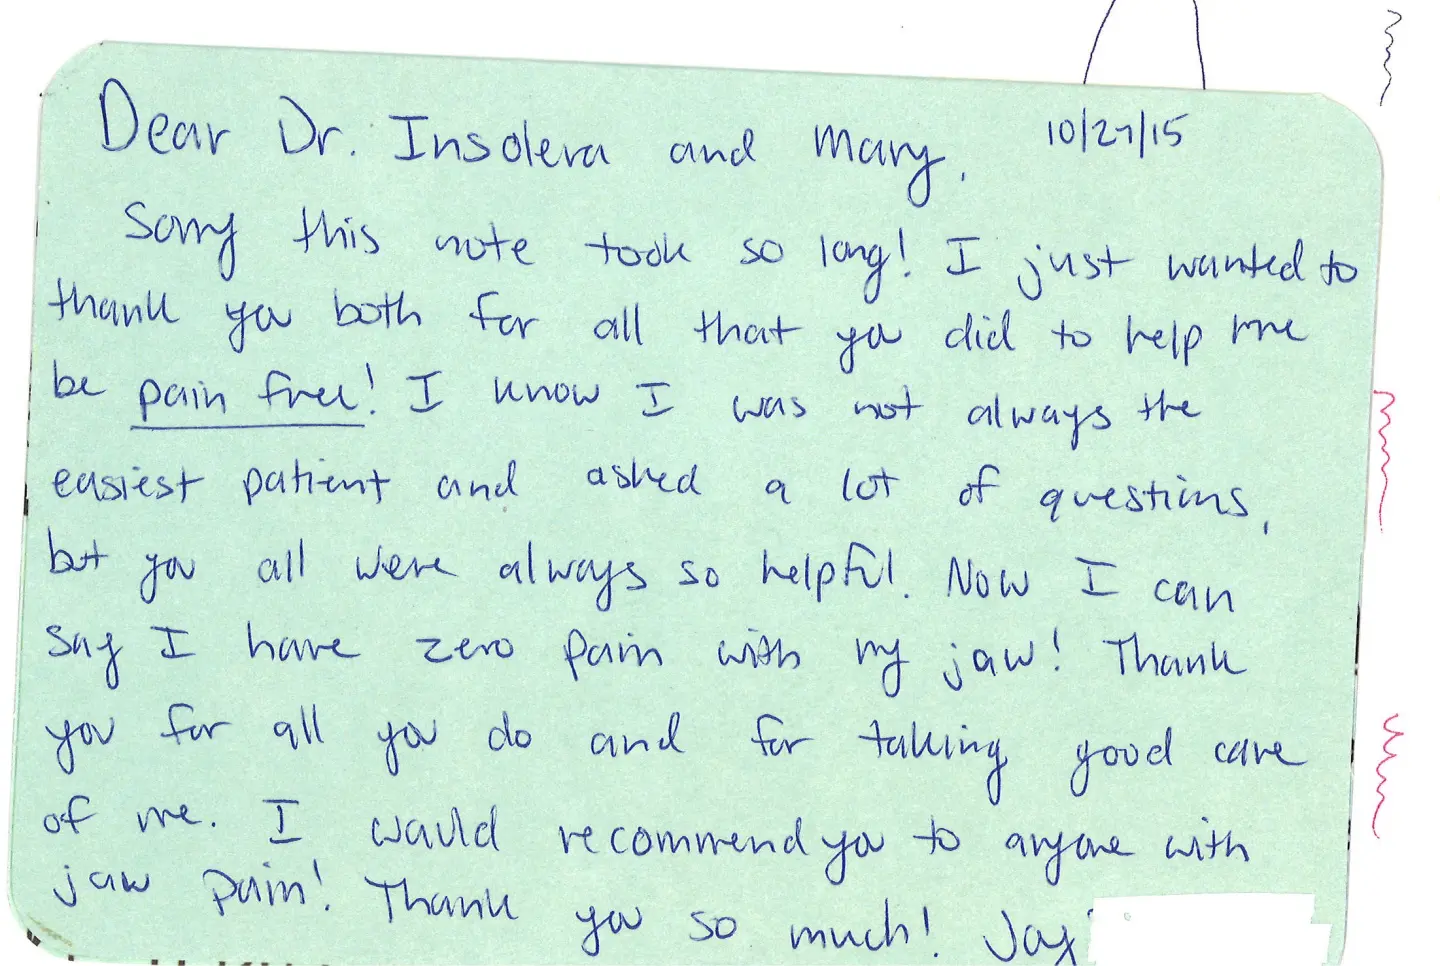 Dear Dr. Insolera and Mary,
10/27/15
Sorry this note took so long! I just wanted to
thank you both for all that you did to help me
be pain free! I know I was not always the
easiest patient and asked a lot of questions,
but you all were always so helpful. Now I can
say I have zero pain with my jaw! Thank
you for all you do and for taking good care
of me. I would recommend you to anyone with
jaw pain! Thank you so much!